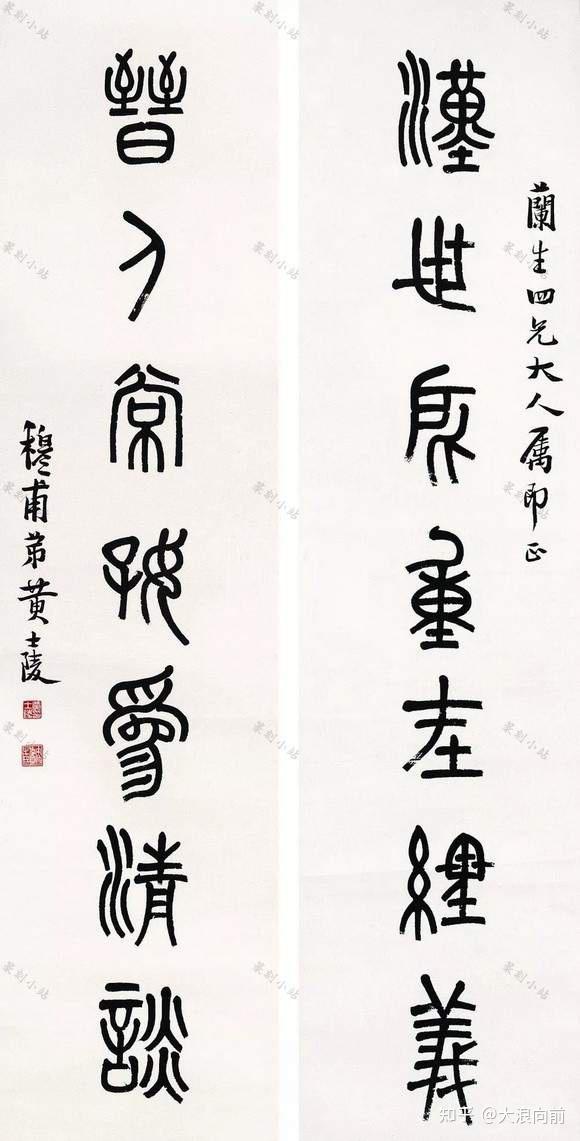 蘭生四兄大人属即正
漢世所重在經義
晉人常好爲清談
穆甫弟黄士陵
篆刻小站
知乎 @大浪向前